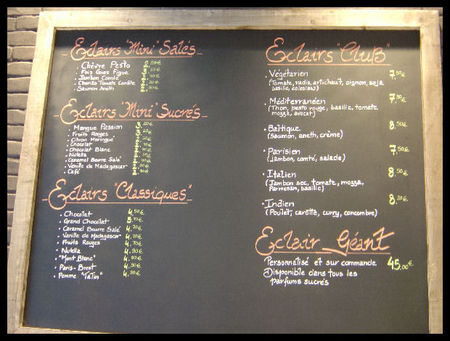 Eclairs "Mini" Salés
Chèvre Pesto
Foie Gras Figue
Jambon Comté
Chorizo Tomate Comté
Saumon Aneth
Eclairs "Mini" Sucrés
Mangue Passion
Fruits Rouges
Citron Meringué
Chocolat
Chocolat Blanc
Nutella
Caramel Beurre Salé
Vanille de Madagascar
Café
Eclairs "Classiques"
Chocolat 4,50€
Grand Chocolat
Caramel Beurre Salé
Vanille de Madagascar
Fruits Rouges
Nutella
"Mont Blanc"
Paris-Brest
Pomme "Tatin"
Eclairs "Club"
Végétarien 7,50€
(Tomate, radis, artichaut, oignon, soja
basilic,
Méditerranéen 7,50€
(Thon, pesto rouge, basilic, tomate
mozza, avocat)
Baltique 8,50€
(Saumon, aneth, crème)
Parisien 7,50€
(Jambon, comté, salade)
Italien 8,50€
(Jambon sec, tomate, mozza,
Parmesan, basilic)
Indien 8,50€
(Poulet, curry, concombre)
Eclair Géant
Personnalisé et sur commande 45,00€
Disponible dans tous les
parfums sucrés